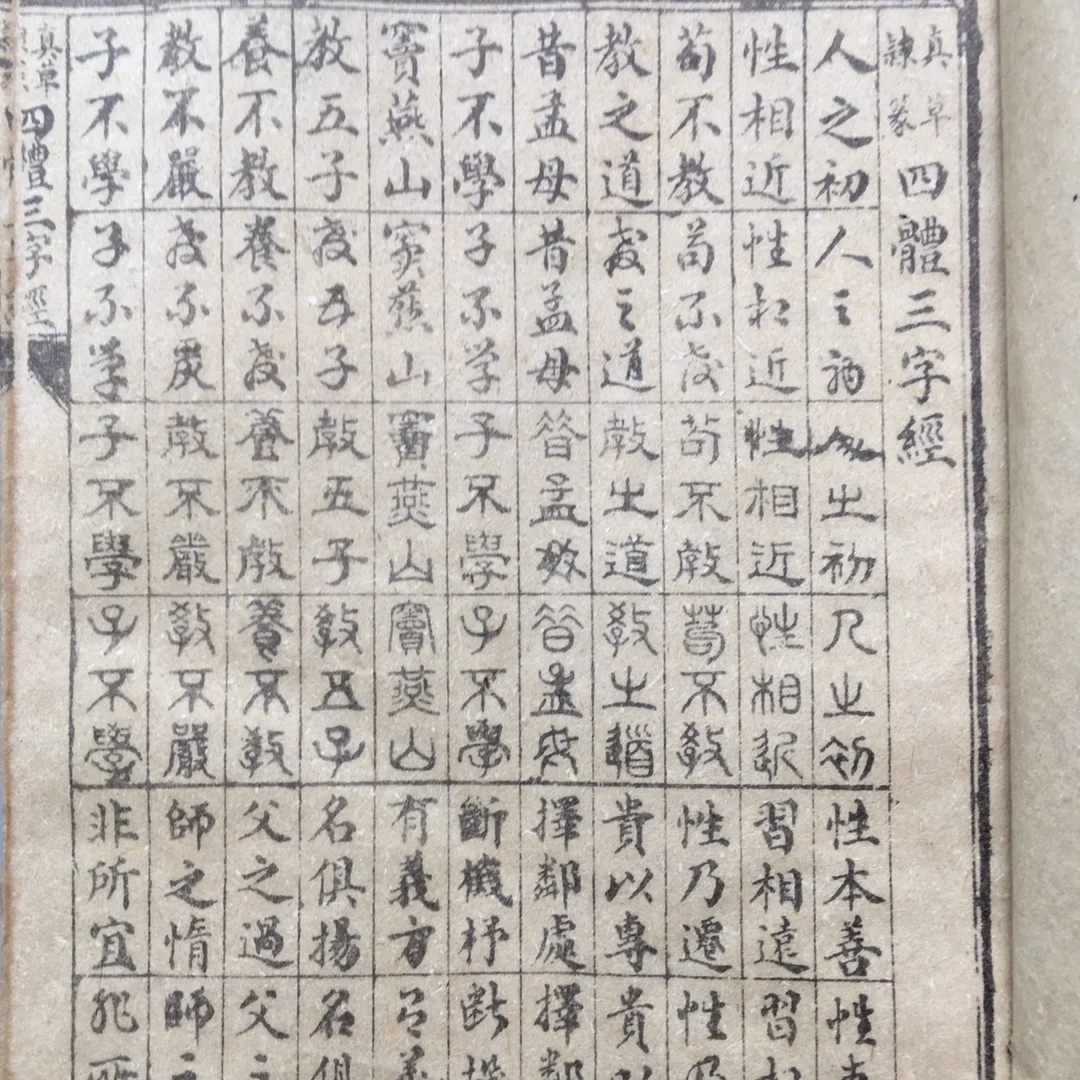 真草隸篆四體三字經
人之初人之初人之初人之初性本善性本
性相近性相近性相近性相近習相遠習相
苟不教苟不教苟不教苟不教性乃遷性乃
教之道教之道教之道教之道貴以專貴以
昔孟母昔孟母昔孟母昔孟母擇鄰處擇鄰
子不學子不学子不學子不學斷機杼断機
竇燕山竇燕山竇燕山竇燕山有義方有義
教五子教五子教五子教五子名俱揚名俱
養不教養不教養不教養不教父之過父之
教不嚴教不嚴教不嚴教不嚴師之惰師之
子不學子不学子不學子不學非所宜非所
真草四體三字經